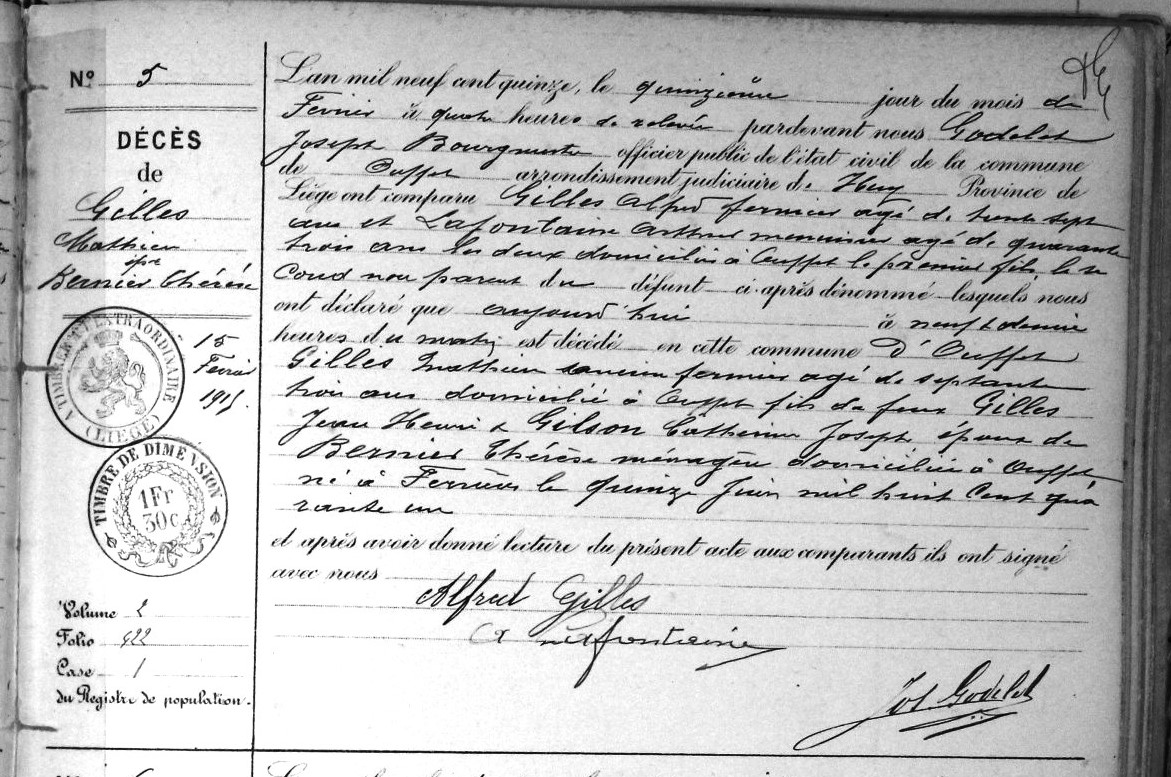 Nº 5
DÉCÈS
de
Gilles
Mathieu
épx
Bernier Thérèse
15
Fevrier
1915.
A TIMBRER À L'EXTRAORDINAIRE
(LIÈGE)
TIMBRE DE DIMENSION
1Fr
30c
Volume 2
Folio 422
Case 1
du Registre de population.
L'an mil neuf cent quinze, le quinzième jour du mois de
Fevrier à quatre heures de relevée pardevant nous Godelet
Joseph Bourgmestre officier public de l'état civil de la commune
de Ouffet arrondissement judiciaire de Huy Province de
Liége ont comparu Gilles Alfred fermier agé de trente sept
ans et Lafontaine Arthur menuisier agé de quarante
trois ans les deux domiciliés à Ouffet le premier fils le se
cond non parent du défunt ci-après dénommé lesquels nous
ont déclaré que aujourd'hui à neuf & demie
heures du matin est décédé en cette commune d'Ouffet
Gilles Mathieu ancien fermier agé de septante
trois ans domicilié à Ouffet fils de feux Gilles
Jean Henri & Gilson Catherine Joseph époux de
Bernier Thérèse ménagère domiciliée à Ouffet
né à Ferrières le quinze Juin mil huit cent qua
rante un
et après avoir donné lecture du présent acte aux comparants ils ont signé
avec nous
Alfred Gilles
A Lafontaine
Jos Godelet